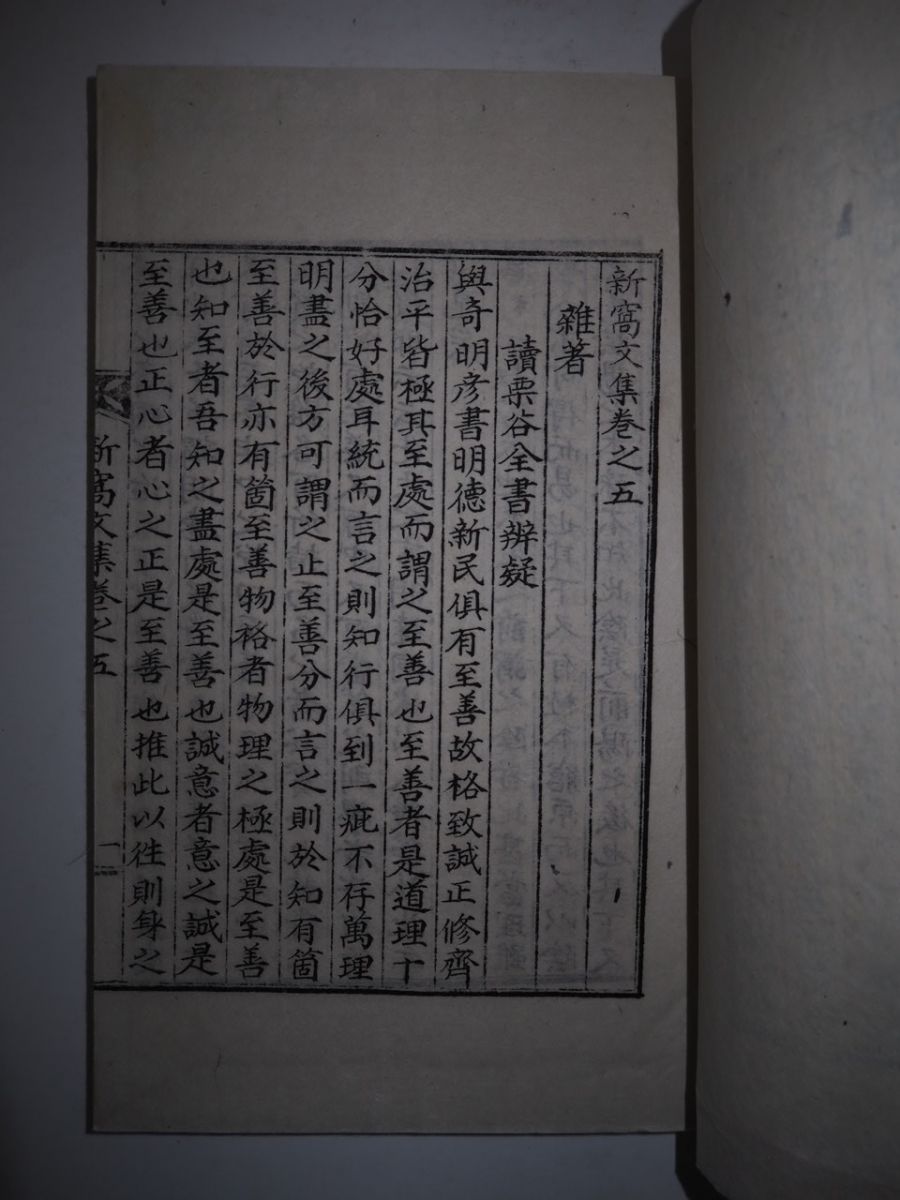 新窩文集卷之五
雜著
讀栗谷全書辨疑
與奇明彦書明德新民俱有至善故格致誠正修齊
治平皆極其至處而謂之至善也至善者是道理十
分恰好處耳統而言之則知行俱到一疵不存萬理
明盡之後方可謂之止至善分而言之則於知有箇
至善於行亦有箇至善物格者物理之極處是至善
也知至者吾知之盡處是至善也誠意者意之誠是
至善也正心者心之正是至善也推此以徃則身之
新窩文集卷之五
一